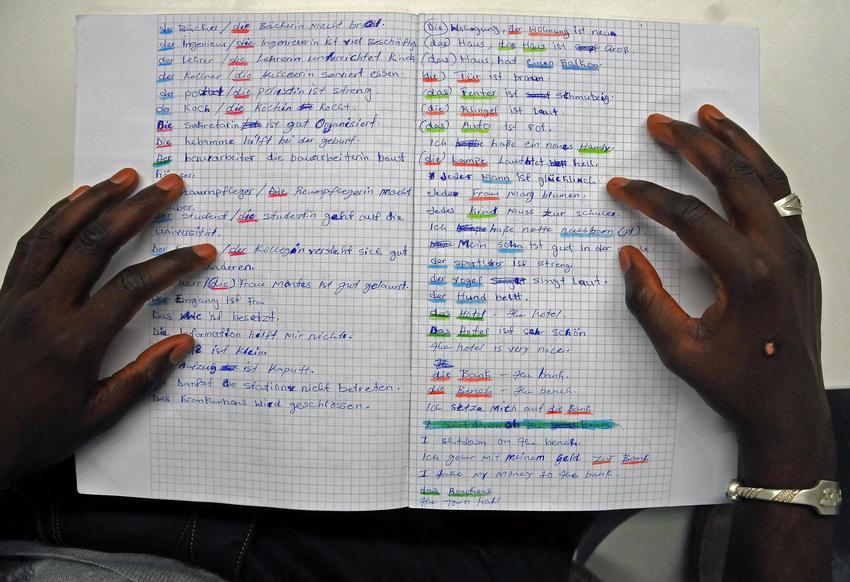 der Bäcker / die Bäckerin macht brot.
der Ingenieur / die Ingenieurin ist viel Beschäftig
der Lehrer / die Lehrerin unterrichtet Kinde
der Kellner / die Kellnerin serviert essen.
der polizist / die polizistin ist streng.
der Koch / die Köchin kocht.
Die Sekretärin ist gut Organisiert
Die hebamme hilft bei der geburt.
Der bauarbeiter die bauarbeiterin baut
häuser.
raumpfleger / Die Raumpflegerin macht
sauber.
der student / die studentin geht auf die
universität.
Der / die Kollegin versteht sich gut
anderen.
herr (Die) Frau Montes ist gut gelaunt.
Die Eingang ist Frei
Das ist besetzt.
Die Information hilft mir nichts.
ist klein.
Aufzug ist Kaputt.
Darfst die station nicht betreten.
Das Krankenhaus wird geschlossen.
(Die) Wohnung, der Wohnung ist neu
(das) Haus, das Haus ist Groß.
(das) Haus, hat einen Balkon.
(die) Tür ist braun.
(das) Fenster ist schmutzig.
(die) Klingel ist Laut.
(das) Auto ist Rot.
Ich haße ein neues Handy.
(die) Lampe Lauchtet hell.
Jeder Mann ist glücklich.
Jede Frau mag blumen.
Jedes Kind muss zur schule.
Ich haße nette nachbarn (pl).
Mein sohn ist gud in der
der sportler ist streng
der vogel singt Laut.
der Hund bellt.
das Hotel - the hotel.
Das Hotel ist sehr schön
the hotel is very nice.
die Bank - the bank.
die Bench - the bench.
Ich setze mich auf die Bank
I sitdown on the bench.
Ich gehe mit meinem geld zur Bank
I take my money to the bank.
das Raathaus
the Town hall